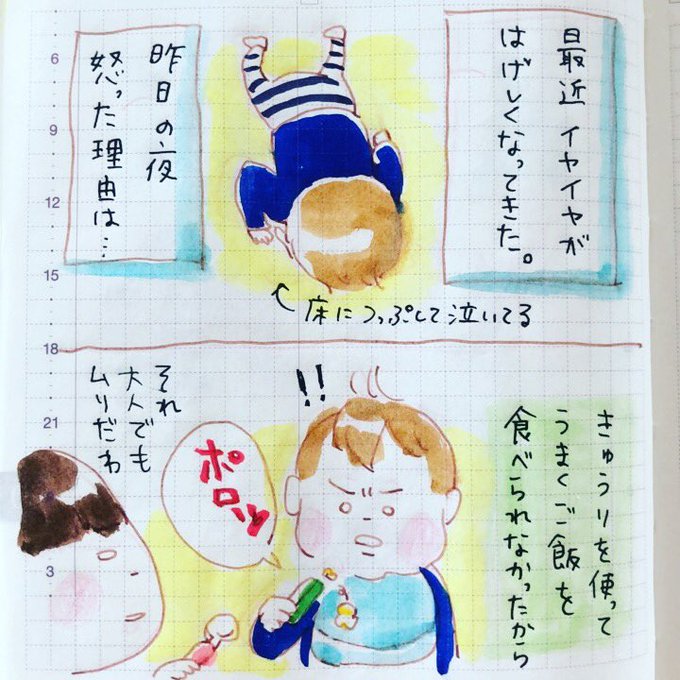 最近イヤイヤが
はげしくなってきた。
昨日の夜
怒った理由は…
床につっぷして泣いてる
きゅうりを使って
うまくご飯を
食べられなかったから
!!
ポロッ
それ
大人でも
ムリだわ
6
9
12
15
18
21
3